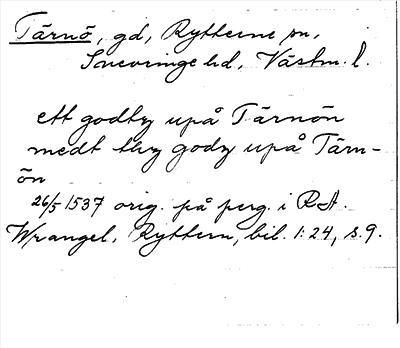 Tärnö, gd, Rytterne sn,
Snevringe hd, Västm. l.
ett godtz upå Tärnön
medt thy godz upå Tärn-
ön
26/5 1537 orig. på perg. i RA.
Wrangel, Ryttern, bil. 1:24, s. 9.